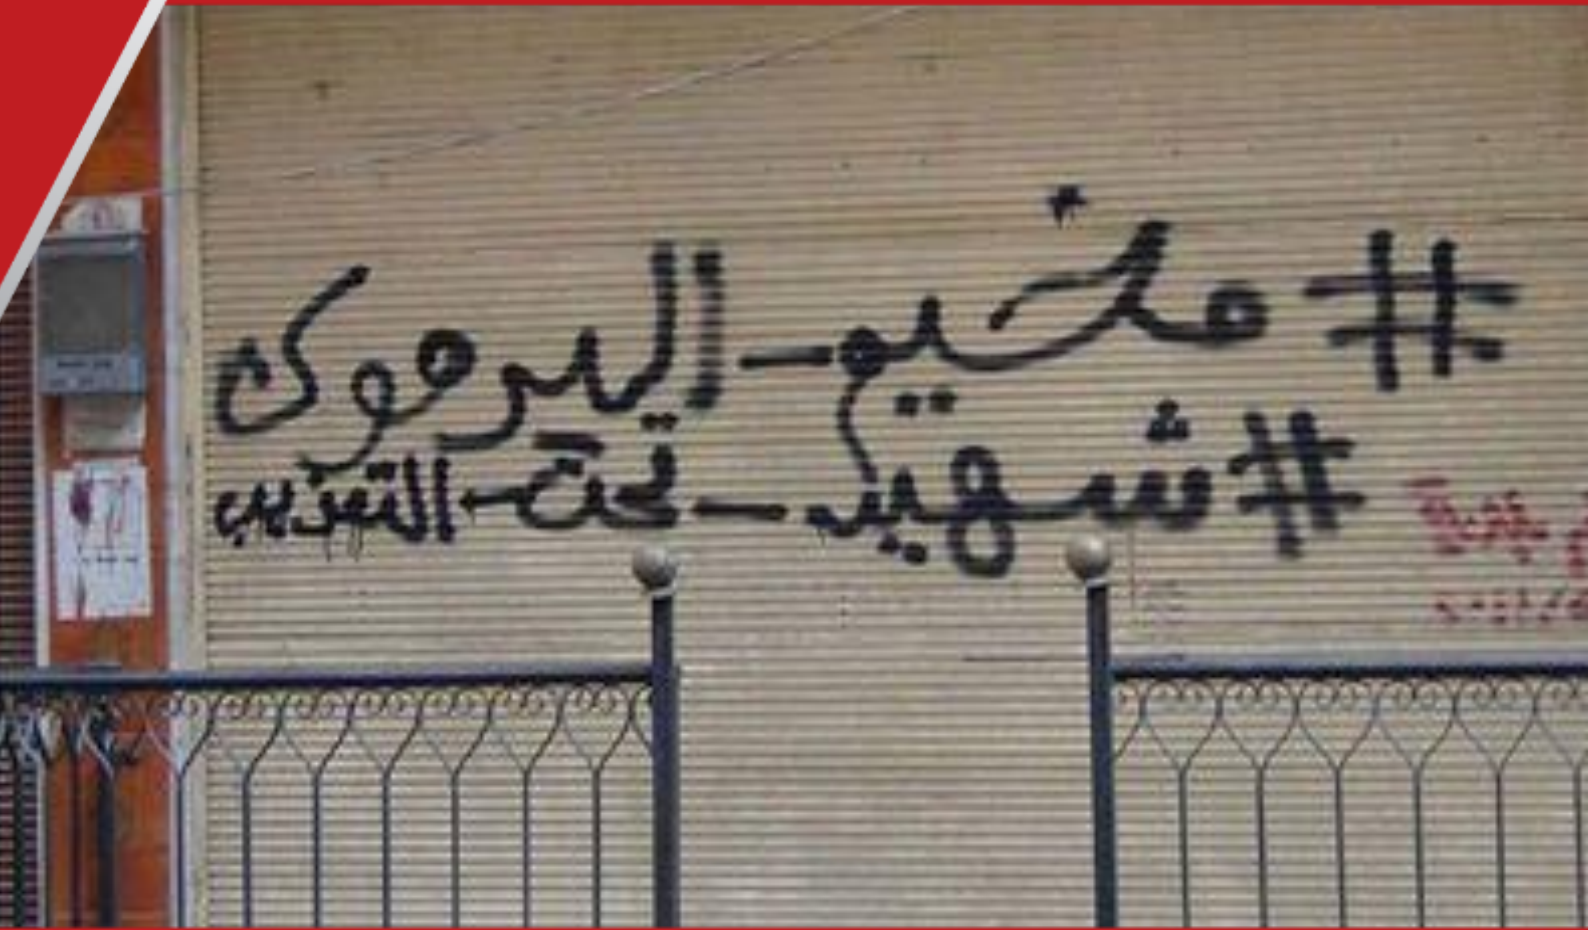 #مخيم-اليرموك
#شهيد-تحت-التعذيب